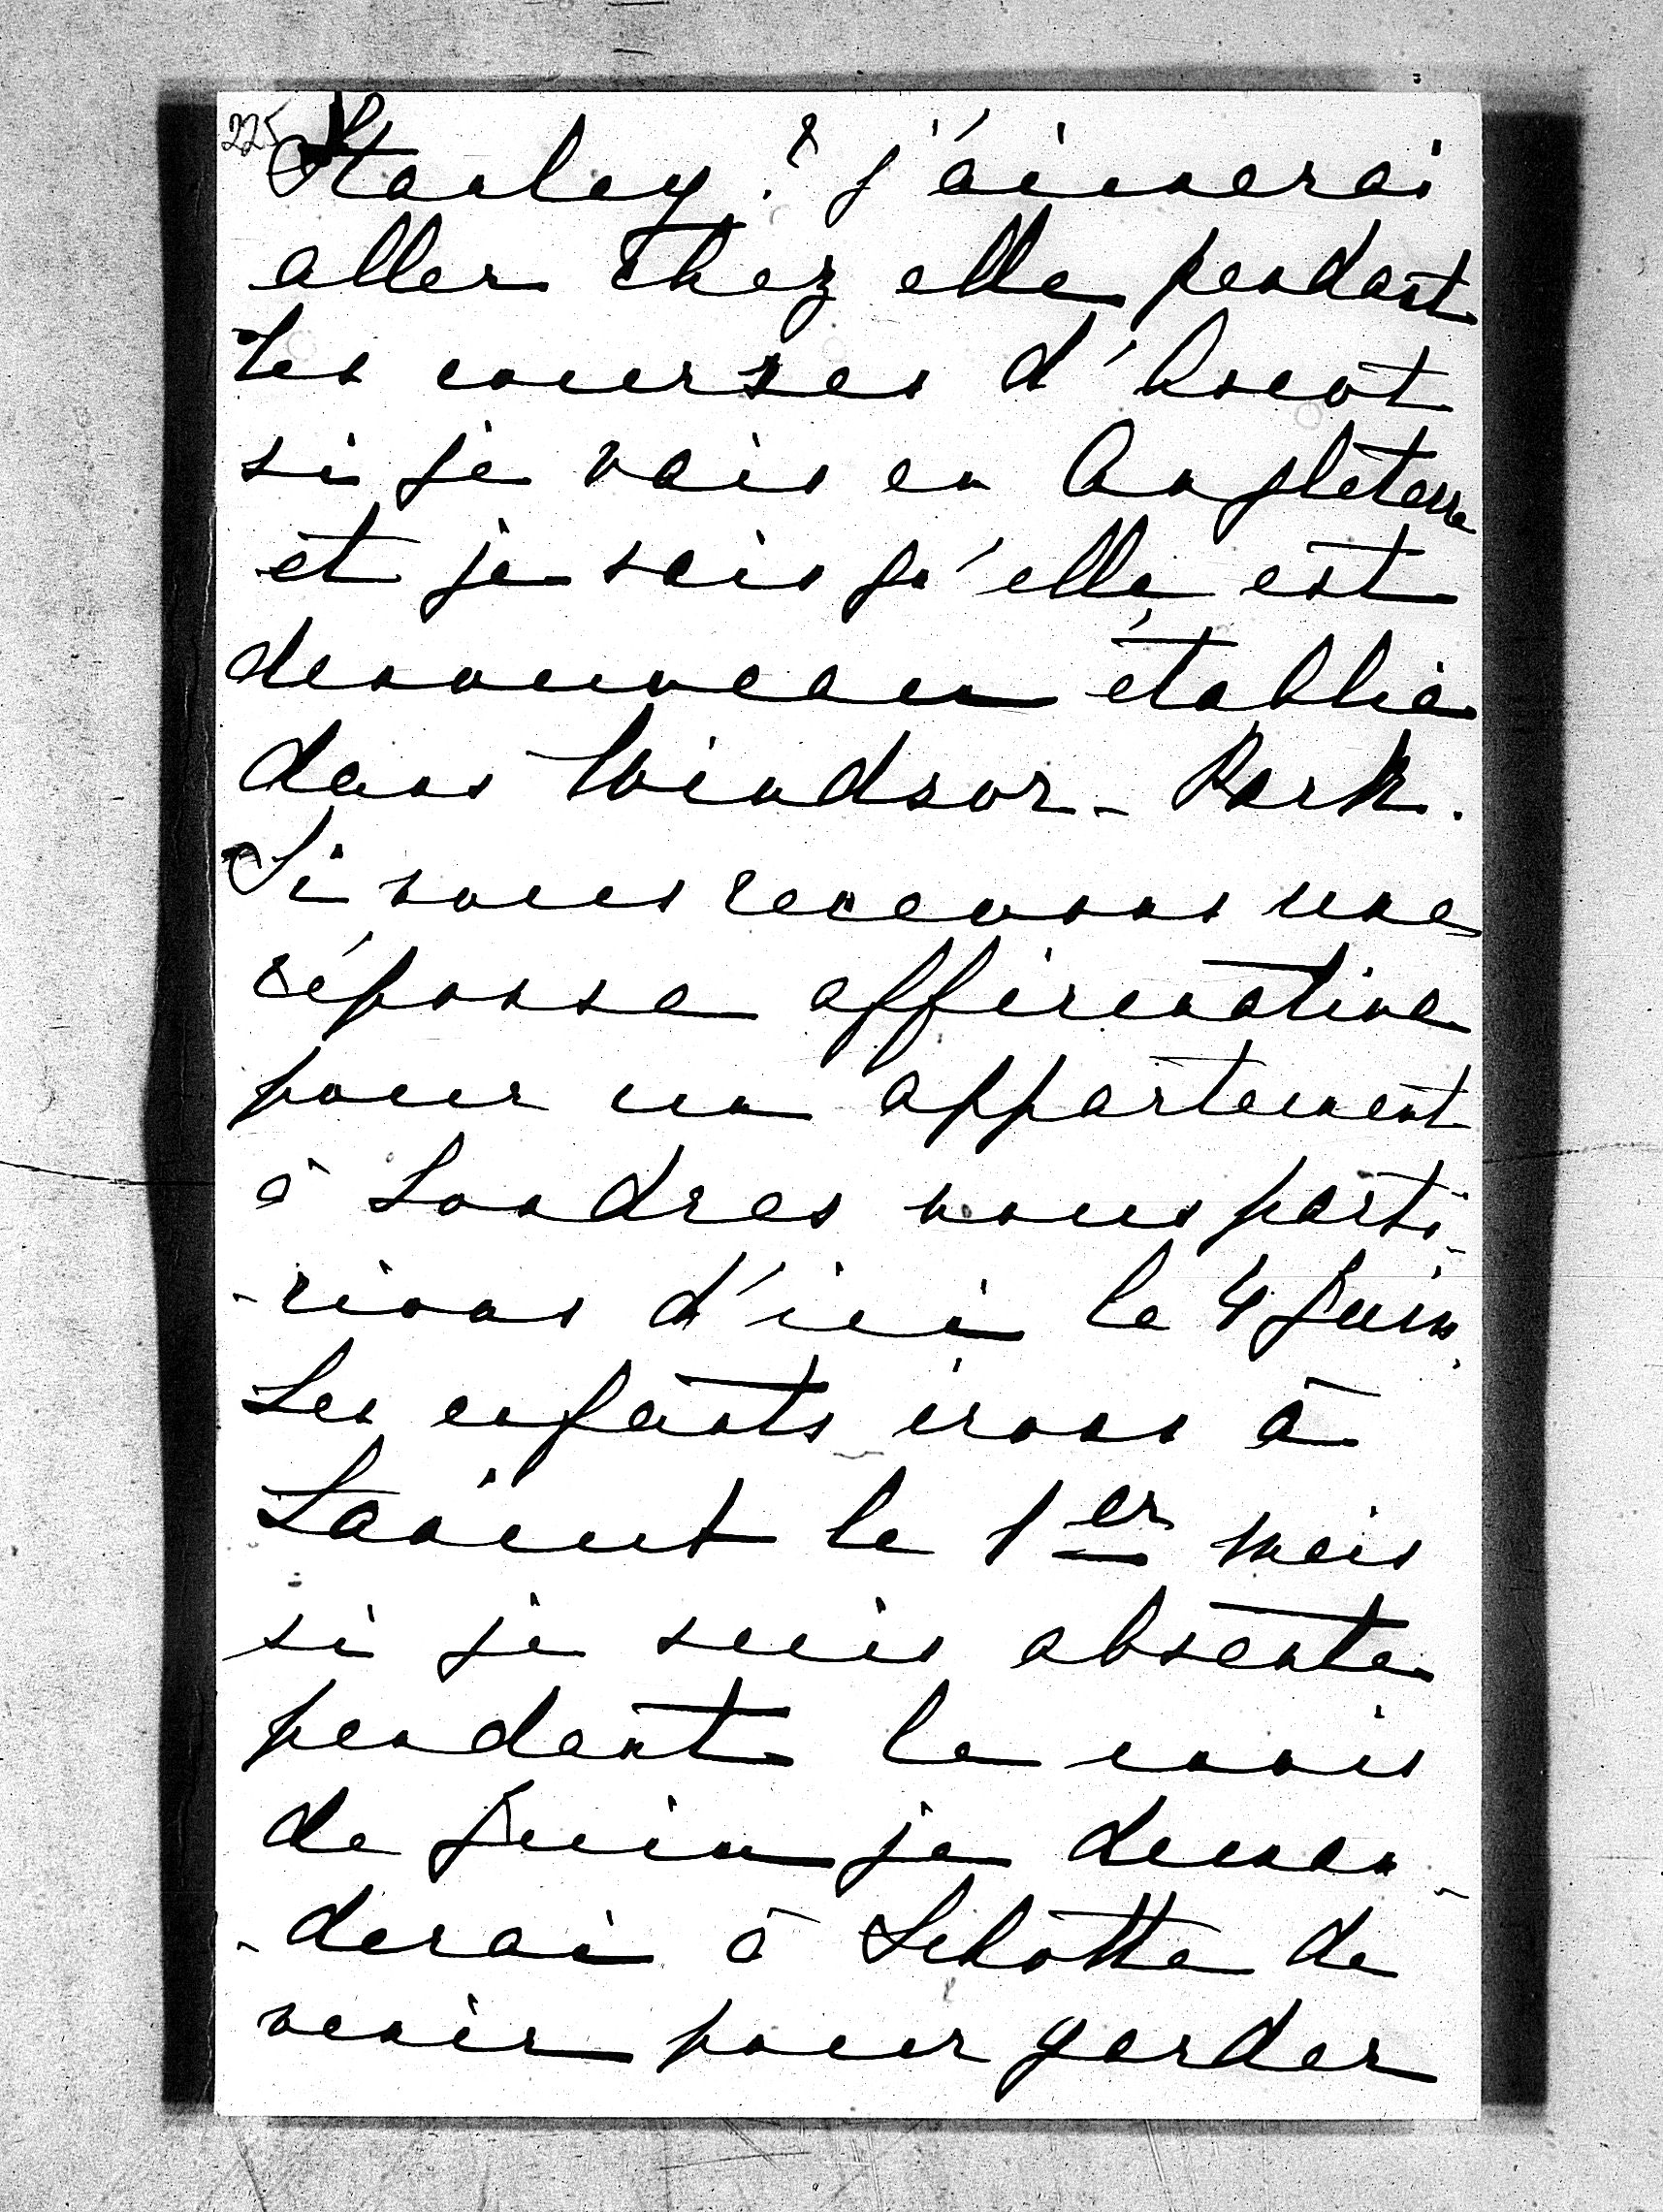 225
Stanley? j'aimerai
aller chez elle pendant
les courses d'Ascot
si je vais en Angleterre
et je sais qu'elle est
denouveau établie
dans Windsor-Park.
Si nous recevons une
réponse affirmative
pour un appartement
à Londres nous parti-
-rions d'ici le 4 Juin.
Les enfants irons à
le 1er mais
si je suis absente
pendant le mois
de Juin je deman-
-derai à Lilotte de
venir pour garder